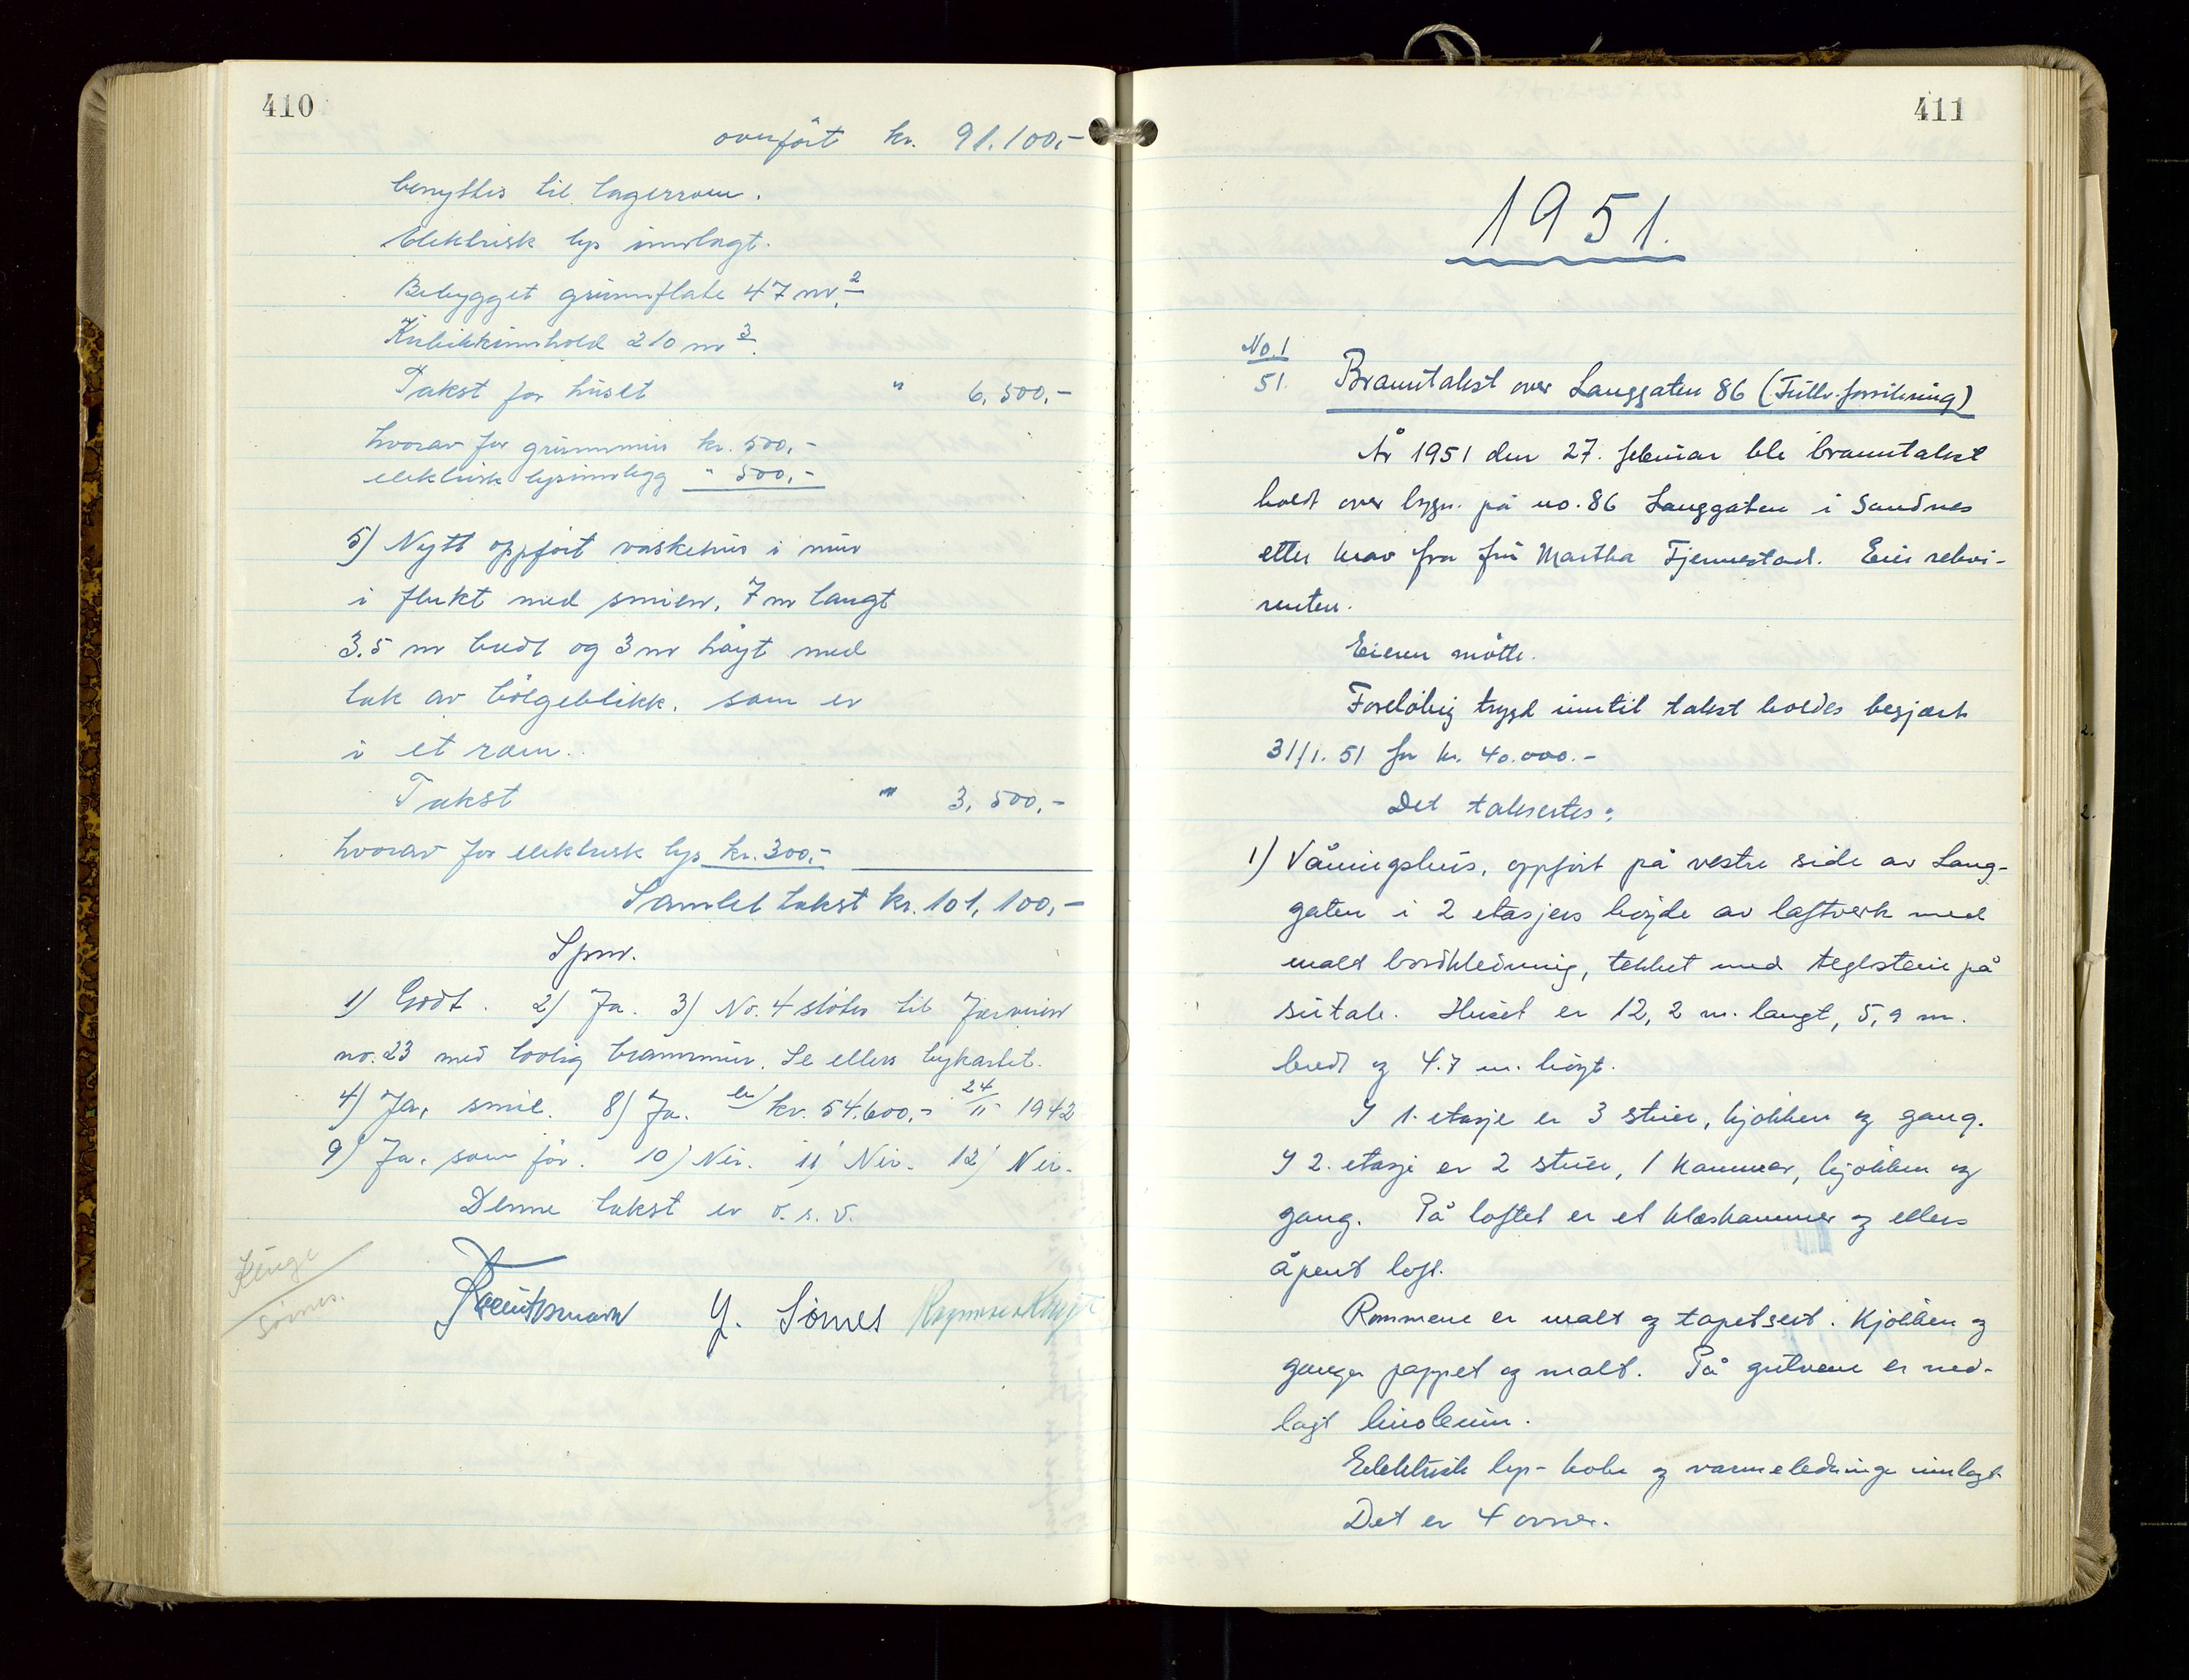 410
overført kr. 91.100,-
benyttes til lagerrom.
Elektrisk lys innlagt.
Bebygget grunnflate 47 m.2
Kubikkinnhold 210 m3.
Takst for huset " 6.500,-
hvorav for grunnmur kr. 500,-
elektrisk lysinnlegg " 500,-
5) Nytt oppført vaskehus i mur
i flukt med smien, 7 m langt
3.5 m bredt og 3 m høyt med
tak av bølgeblikk, som er
i et rom.
Takst " 3.500,-
hvorav for elektrisk lys kr. 300,-
Samlet takst kr. 101.100,-
Spm.
1) Godt. 2) Ja. 3) No. 4 støter til Jærveien
no. 23 med lovlig brannmur. Se ellers bykartet.
4) Ja, smie. 8) Ja. kr. 54.600,- 24/11 1942
9) Ja, som før. 10) Nei. 11) Nei. 12) Nei.
Denne takst er o.s.v.
Sømes.
G. Sømes
411
1951.
No. 1
51.
Branntakst over Langgaten 86 (Fullv.forsikring)
År 1951 den 27. februar ble branntakst
holdt over bygn. på no. 86 Langgaten i Sandnes
etter krav fra fru Martha Tjennestad. Eier rekvi-
renten.
Eieren møtte.
Foreløbig trygd inntil takst holdes begjært
31/1. 51 for kr. 40.000.-
Det takseres:
1) Våningshus, oppført på vestre side av Lang-
gaten i 2 etasjers høyde av laftverk med
malt bordkledning, tekket med teglstein på
sutak. Huset er 12,2 m. langt, 5,9 m.
bredt og 4.7 m. høyt.
I 1. etasje er 3 stuer, kjøkken og gang.
I 2. etasje er 2 stuer, 1 kammer, kjøkken og
gang. På loftet er et klæskammer og ellers
åpent loft.
Rommene er malt og tapetsert. Kjøkken og
ganger pappet og malt. På gulvene er ned-
lagt linoleum.
Elektrisk lys- koke og varmeledninger innlagt.
Det er 4 ovner.